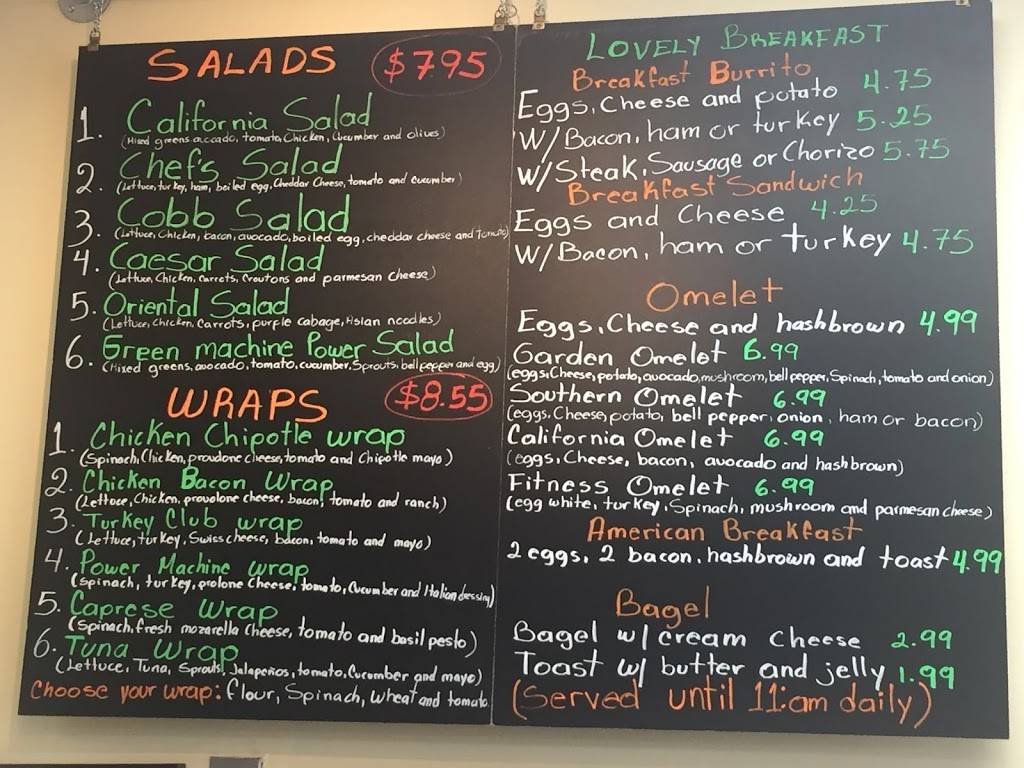 SALADS $7.95
1. California Salad
(Mixed greens, accado, tomato, Chicken, Cucumber and olives)
2. Chef's Salad
(Lettuce, turkey, ham, boiled egg, Cheddar Cheese, tomato and cucumber)
3. Cobb Salad
(Lettuce, Chicken, bacon, avocado, boiled egg, cheddar cheese and tomato)
4. Caesar Salad
(Lettuce, Chicken, Carrots, Croutons and parmesan cheese)
5. Oriental Salad
(Lettuce, Chicken, Carrots, purple cabage, Asian noodles)
6. Green machine Power Salad
(Mixed greens, avocado, tomato, cucumber, Sprouts, bell pepper and egg)
WRAPS $8.55
1. Chicken Chipotle wrap
(Spinach, Chicken, proudone cheese, tomato and Chipotle mayo)
2. Chicken Bacon Wrap
(Lettuce, Chicken, provolone cheese, bacon, tomato and ranch)
3. Turkey Club wrap
(Lettuce, turkey, Swiss cheese, bacon, tomato and mayo)
4. Power Machine wrap
(Spinach, turkey, prolone Cheese, tomato, Cucumber and Italion dressing)
5. Caprese Wrap
(Spinach, fresh mozarella Cheese, tomato and basil pesto)
6. Tuna Wrap
(Lettuce, Tuna, Sprouts, Jalapeños, tomato, Cucumber and mayo)
Choose your wrap: flour, Spinach, wheat and tomato
LOVELY BREAKFAST
Breakfast Burrito
Eggs, Cheese and potato 4.75
W/Bacon, ham or turkey 5.25
W/Steak, Sausage or Chorizo 5.75
Breakfast Sandwich
Eggs and Cheese 4.25
W/Bacon, ham or turkey 4.75
Omelet
Eggs, Cheese and hashbrown 4.99
Garden Omelet 6.99
(eggs, Cheese, potato, avocado, mushroom, bell pepper, Spinach, tomato and onion)
Southern Omelet 6.99
(eggs, Cheese, potato, bell pepper, onion, ham or bacon)
California Omelet 6.99
(eggs, Cheese, bacon, avocado and hashbrown)
Fitness Omelet 6.99
(egg white, turkey, Spinach, mushroom and parmesan cheese)
American Breakfast
2 eggs, 2 bacon, hashbrown and toast 4.99
Bagel
Bagel w/ cream cheese 2.99
Toast w/ butter and jelly 1.99
(Served until 11:am daily)